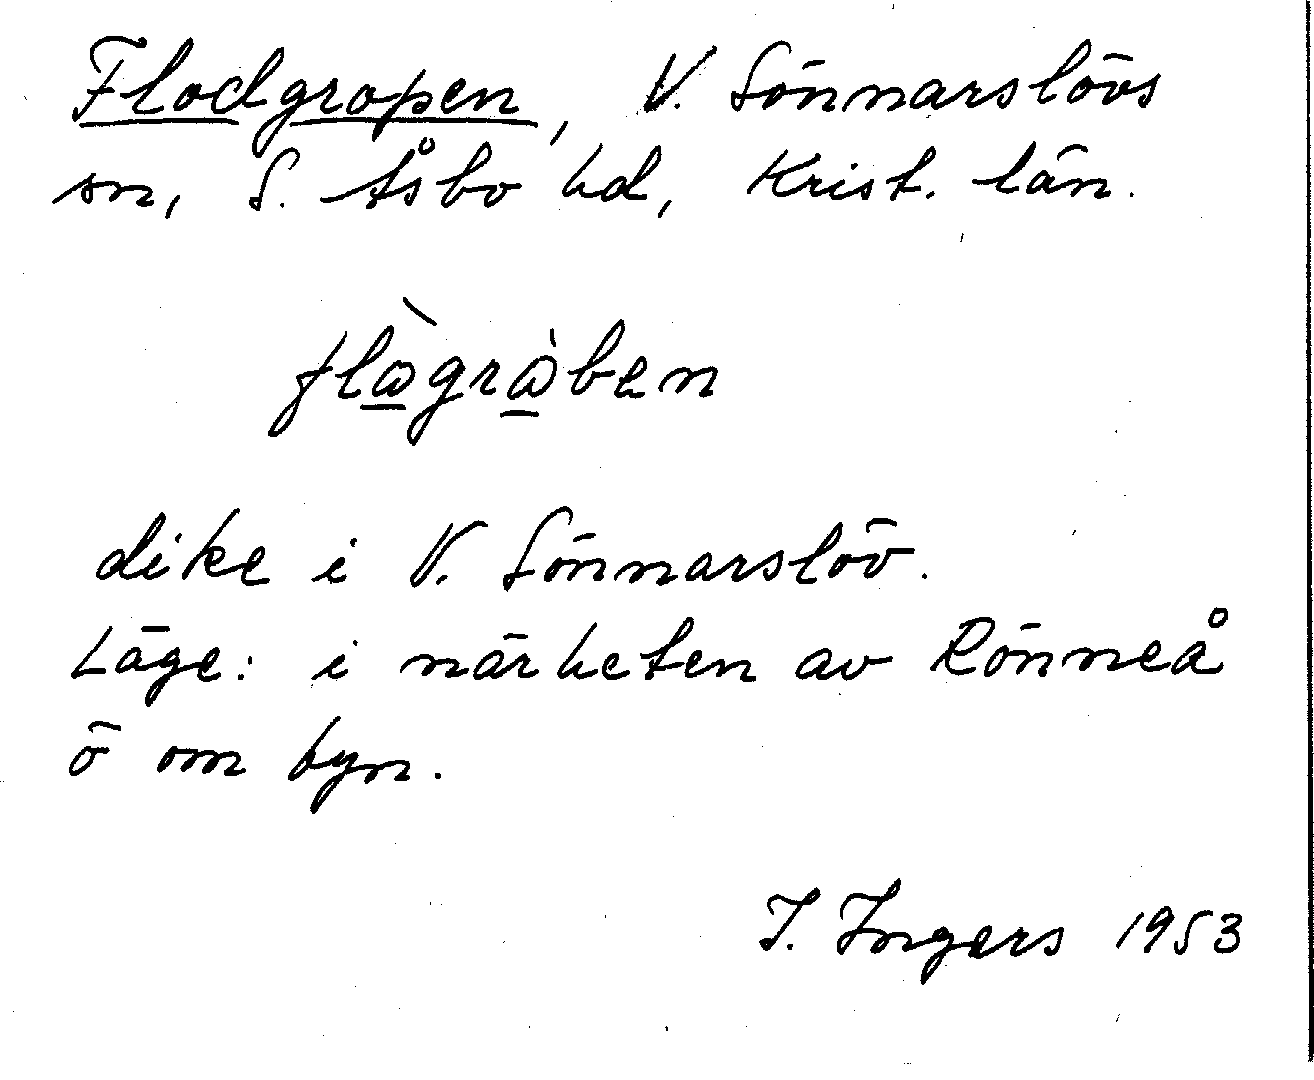 Flodgropen, V. Sönnarslövs
sn, S. Åsbo hd, Krist. län.
flàgràben
dike i V. Sönnarslöv.
Läge: i närheten av Rönneå
ö om byn.
I. Ingers 1953